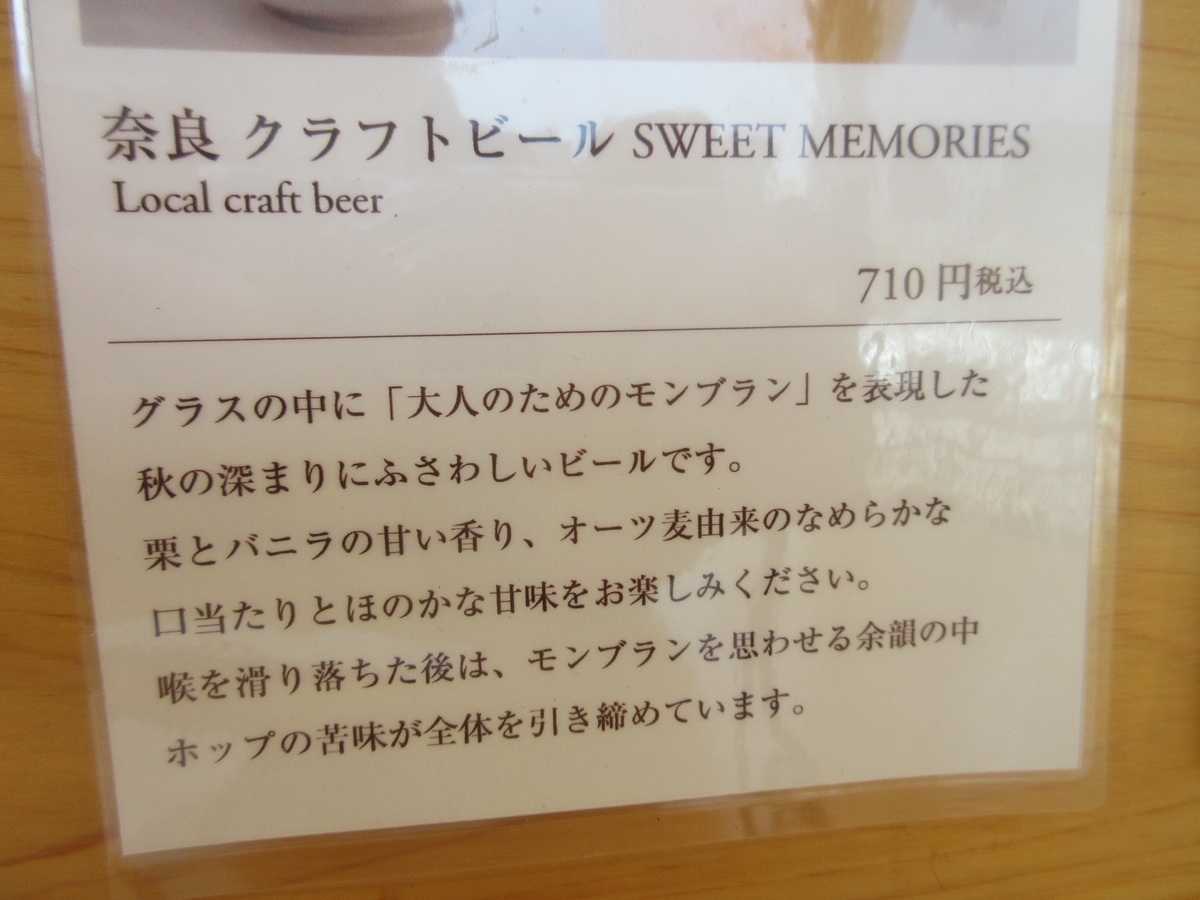 奈良 クラフトビール SWEET MEMORIES
Local craft beer
710 円税込
グラスの中に「大人のためのモンブラン」を表現した
秋の深まりにふさわしいビールです。
栗とバニラの甘い香り、オーツ麦由来のなめらかな
口当たりとほのかな甘味をお楽しみください。
喉を滑り落ちた後は、モンブランを思わせる余韻の中
ホップの苦味が全体を引き締めています。